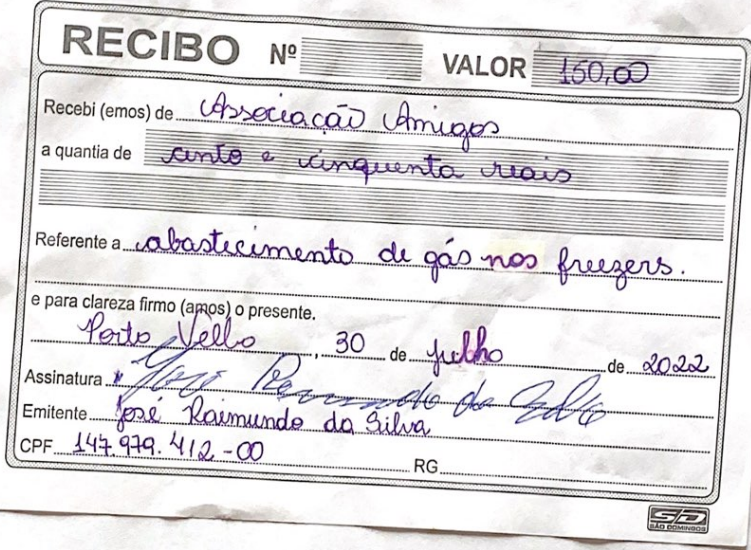 RECIBO Nº VALOR 150,00
Recebi (emos) de Associação Amigos
a quantia de cento e cinquenta reais
Referente a abastecimento de gás nos freezers.
e para clareza firmo (amos) o presente.
Porto Velho, 30 de julho de 2022
Assinatura José Raimundo da Silva
Emitente José Raimundo da Silva
CPF 147.979.412-00 RG
SD
SÃO DOMINGOS